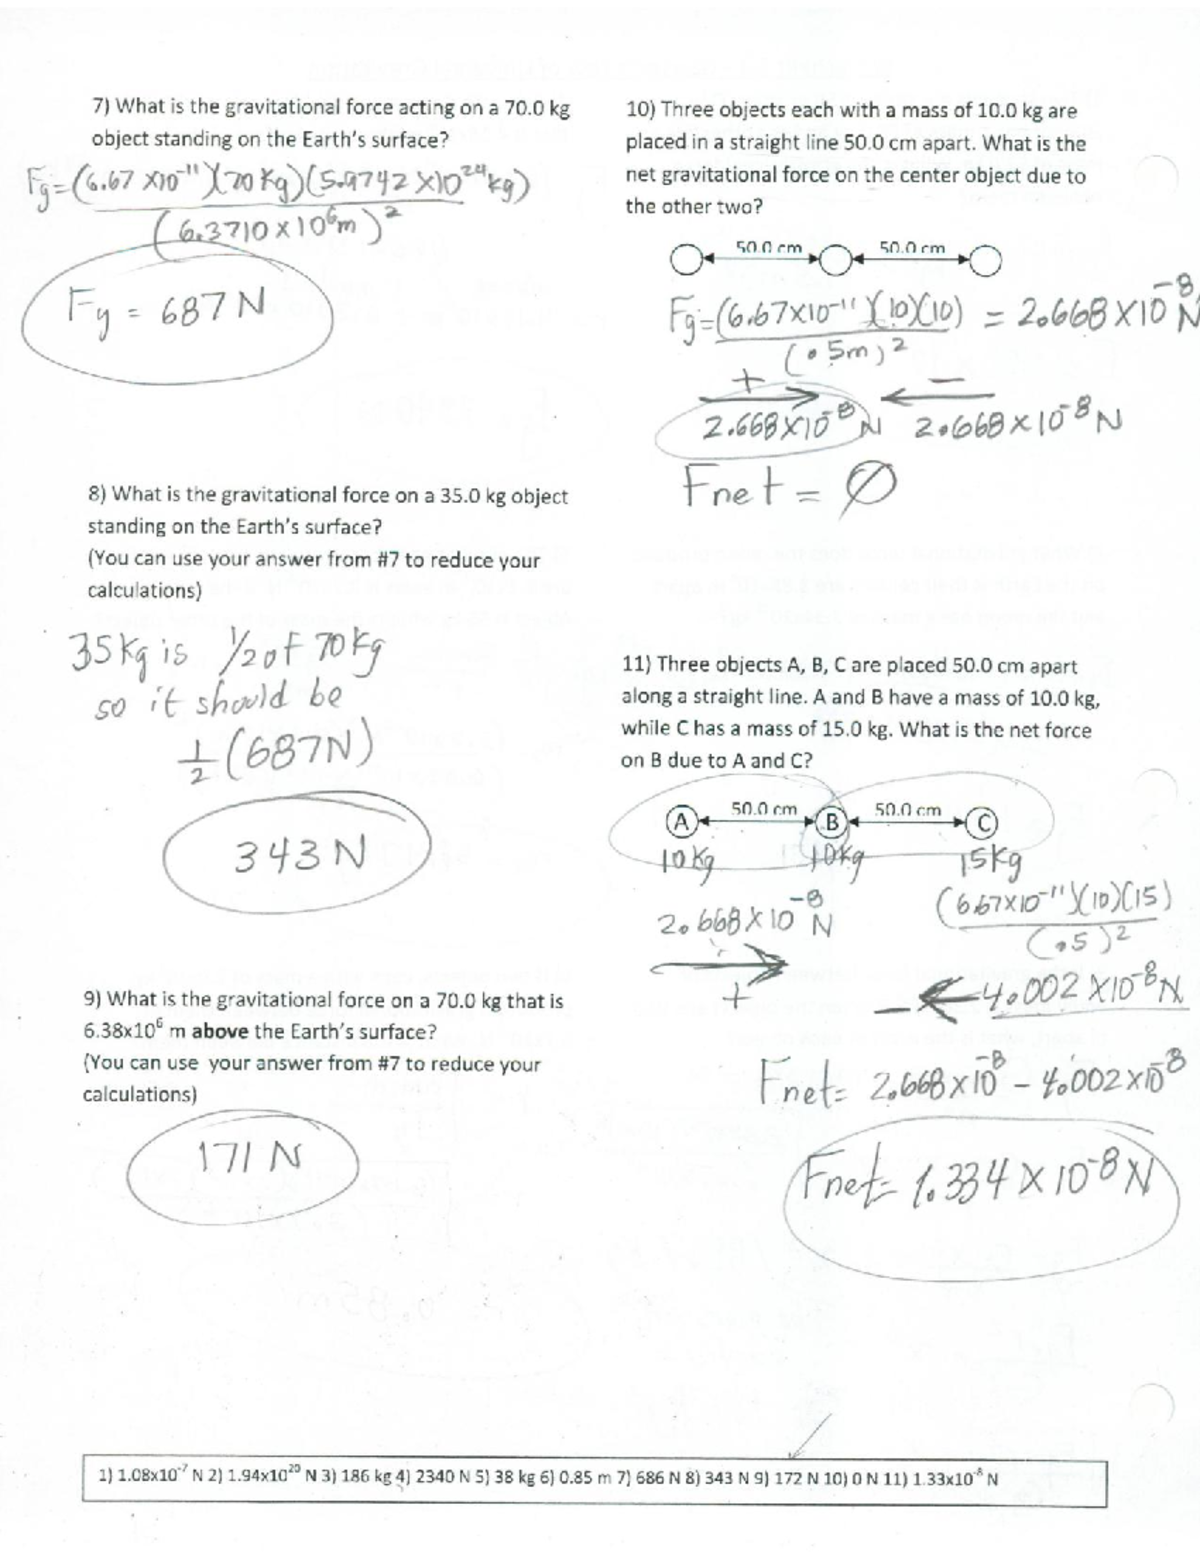 7) What is the gravitational force acting on a 70.0 kg
object standing on the Earth's surface?
Fg=(6.67 x10⁻¹¹)(70 Kg)(5.9742 x10²⁴ kg)
(6.3710 x 10⁶m)²
Fg = 687 N
8) What is the gravitational force on a 35.0 kg object
standing on the Earth's surface?
(You can use your answer from #7 to reduce your
calculations)
35 kg is 1/2 of 70 kg
so it should be
1/2 (687N)
343 N
9) What is the gravitational force on a 70.0 kg that is
6.38x10⁶ m above the Earth's surface?
(You can use your answer from #7 to reduce your
calculations)
171 N
10) Three objects each with a mass of 10.0 kg are
placed in a straight line 50.0 cm apart. What is the
net gravitational force on the center object due to
the other two?
50.0 cm 50.0 cm
Fg=(6.67x10⁻¹¹)(10)(10) = 2.668 x10⁻⁸ N
(.5m)²
+ −
2.668x10⁻⁸ N 2.668 x10⁻⁸ N
Fnet = Ø
11) Three objects A, B, C are placed 50.0 cm apart
along a straight line. A and B have a mass of 10.0 kg,
while C has a mass of 15.0 kg. What is the net force
on B due to A and C?
A 50.0 cm B 50.0 cm C
10 kg 10kg 15kg
2.668 x 10⁻⁸ N (6.67x10⁻¹¹)(10)(15)
(.5)²
+ − 4.002 x10⁻⁸ N
Fnet= 2.668x10⁻⁸ − 4.002 x10⁻⁸
Fnet= 1.334 x 10⁻⁸ N
1) 1.08x10⁻⁷ N 2) 1.94x10²⁰ N 3) 186 kg 4) 2340 N 5) 38 kg 6) 0.85 m 7) 686 N 8) 343 N 9) 172 N 10) 0 N 11) 1.33x10⁻⁸ N